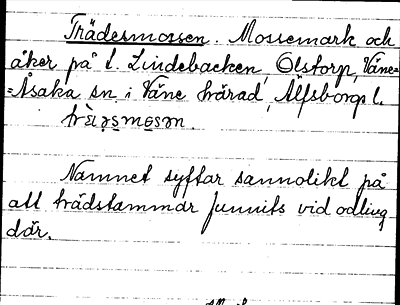 Trädesmossen. Mossemark och
åker på t. Lindebacken, Olstorp, Väne-
=Åsaka sn i Väne härad, Älfsborgs l.
Namnet syftar sannolikt på
att trädstammar funnits vid odling
där.